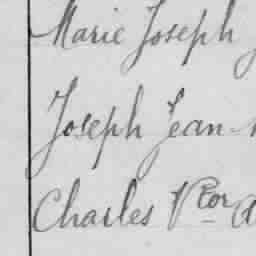 Marie Joseph
Joseph Jean
Charles Vtor